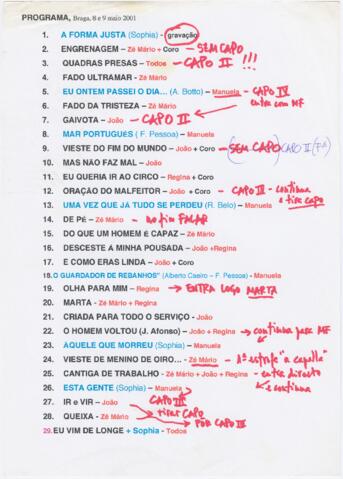 PROGRAMA, Braga, 8 e 9 maio 2001
1. A FORMA JUSTA (Sophia) - gravação
2. ENGRENAGEM – Zé Mário + Coro → SEM CAPO
3. QUADRAS PRESAS – Todos → CAPO II !!!
4. FADO ULTRAMAR - Zé Mário
5. EU ONTEM PASSEI O DIA... (A. Botto) – Manuela → CAPO IV
entra com MF
6. FADO DA TRISTEZA – Zé Mário
7. GAIVOTA – João → CAPO II
8. MAR PORTUGUÊS ( F. Pessoa) - Manuela
9. VIESTE DO FIM DO MUNDO – João + Coro → (SEM CAPO) CAPO II
10. MAS NÃO FAZ MAL – João
11. EU QUERIA IR AO CIRCO – Regina + Coro
12. ORAÇÃO DO MALFEITOR – João + Coro → CAPO III – continua
e tira capo
13. UMA VEZ QUE JÁ TUDO SE PERDEU (R. Belo) - Manuela
14. DE PÉ – Zé Mário → no fim FALAR
15. DO QUE UM HOMEM É CAPAZ – Zé Mário
16. DESCESTE À MINHA POUSADA – João +Regina
17. E COMO ERAS LINDA – João + Coro
18. O GUARDADOR DE REBANHOS" (Alberto Caeiro – F. Pessoa) - Manuela
19. OLHA PARA MIM – Regina → ENTRA LOGO MARTA
20. MARTA - Zé Mário + Regina
21. CRIADA PARA TODO O SERVIÇO - João
22. O HOMEM VOLTOU (J. Afonso) – João + Regina → continua para MF
23. AQUELE QUE MORREU (Sophia) - Manuela
24. VIESTE DE MENINO DE OIRO... - Zé Mário → 1ª estrofe "a capella"
25. CANTIGA DE TRABALHO - Zé Mário + João + Regina → entra directo
26. ESTA GENTE (Sophia) – Manuela e continua
27. IR e VIR – João CAPO III
28. QUEIXA - Zé Mário → tirar CAPO
→ PÔR CAPO III
29. EU VIM DE LONGE + Sophia - Todos